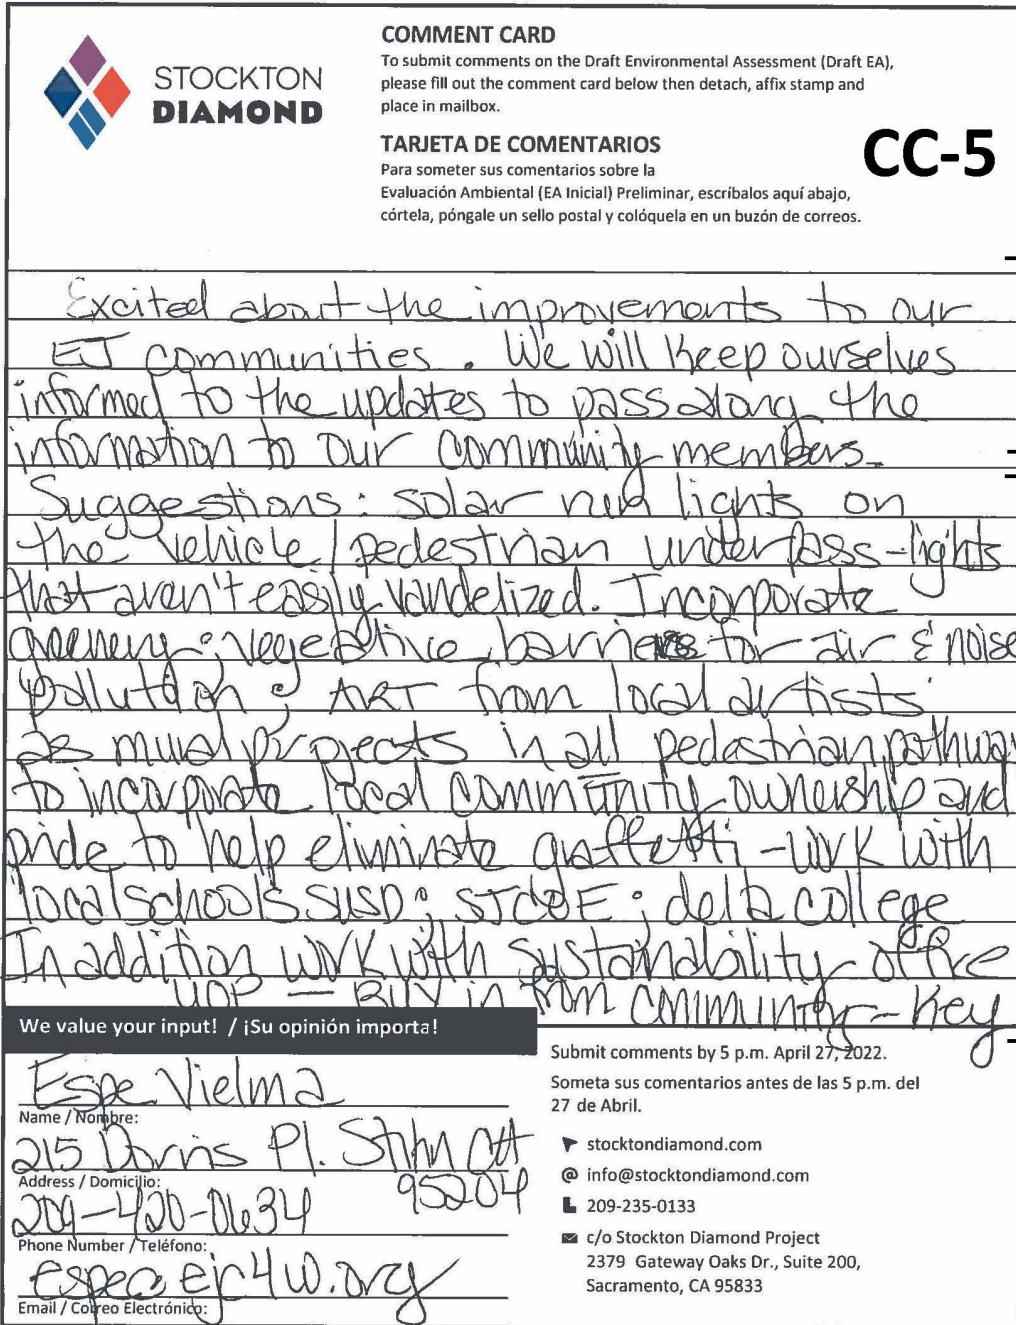 STOCKTON
DIAMOND
COMMENT CARD
To submit comments on the Draft Environmental Assessment (Draft EA),
please fill out the comment card below then detach, affix stamp and
place in mailbox.
TARJETA DE COMENTARIOS
Para someter sus comentarios sobre la
Evaluación Ambiental (EA Inicial) Preliminar, escríbalos aquí abajo,
córtela, póngale un sello postal y colóquela en un buzón de correos.
CC-5
Excited about the improvements to our
EJ communities. We will keep ourselves
informed to the updates to pass along the
information to our community members.
Suggestions: solar lights on
the vehicle / pedestrian underpass - lights
that aren't easily vandelized. Incorporate
greenery; vegetative barriers for air & noise
pollution; ART from local artists
as mural projects in all pedestrian pathway
to incorporate local community ownership and
pride to help eliminate graffetti - work with
local schools SUSD; SJCOE; delta college
In addition work with sustainability office
UOP - BUY in from community - key
We value your input! / ¡Su opinión importa!
Espe Vielma
Name / Nombre:
215 Dorris Pl. Stkn CA
95204
Address / Domicilio:
209-420-0634
Phone Number / Teléfono:
espe@ejc4w.org
Email / Correo Electrónico:
Submit comments by 5 p.m. April 27, 2022.
Someta sus comentarios antes de las 5 p.m. del
27 de Abril.
stocktondiamond.com
@ info@stocktondiamond.com
209-235-0133
c/o Stockton Diamond Project
2379 Gateway Oaks Dr., Suite 200,
Sacramento, CA 95833